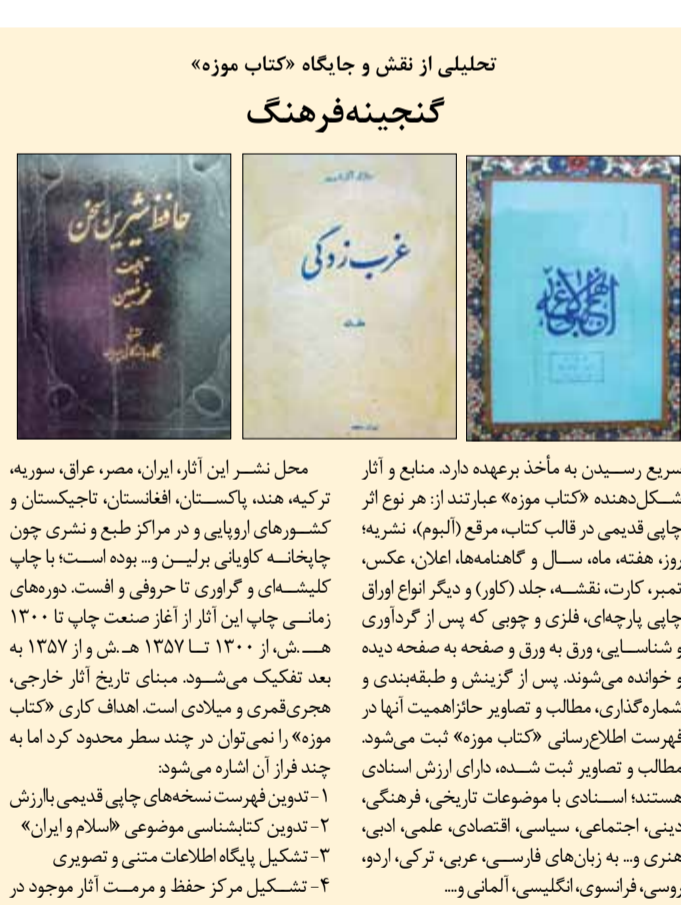 تحلیلی از نقش و جایگاه «کتاب موزه»
گنجینه‌فرهنگ
نهج البلاغه
غرب زدگی
حافظ شیرین سخن
محمد معین
سریع رسیدن به مأخذ برعهده دارد. منابع و آثار
شکل‌دهنده «کتاب موزه» عبارتند از: هر نوع اثر
چاپی قدیمی در قالب کتاب، مرقع (آلبوم)، نشریه؛
روز، هفته، ماه، سال و گاهنامه‌ها، اعلان، عکس،
تمبر، کارت، نقشه، جلد (کاور) و دیگر انواع اوراق
چاپی پارچه‌ای، فلزی و چوبی که پس از گردآوری
و شناسایی، ورق به ورق و صفحه به صفحه دیده
و خوانده می‌شوند. پس از گزینش و طبقه‌بندی و
شماره‌گذاری، مطالب و تصاویر حائزاهمیت آنها در
فهرست اطلاع‌رسانی «کتاب موزه» ثبت می‌شود.
مطالب و تصاویر ثبت شده، دارای ارزش اسنادی
هستند؛ اسنادی با موضوعات تاریخی، فرهنگی،
دینی، اجتماعی، سیاسی، اقتصادی، علمی، ادبی،
هنری و... به زبان‌های فارسی، عربی، ترکی، اردو،
روسی، فرانسوی، انگلیسی، آلمانی و....
محل نشر این آثار، ایران، مصر، عراق، سوریه،
ترکیه، هند، پاکستان، افغانستان، تاجیکستان و
کشورهای اروپایی و در مراکز طبع و نشری چون
چاپخانه کاویانی برلین و... بوده است؛ با چاپ
کلیشه‌ای و گراوری تا حروفی و افست. دوره‌های
زمانی چاپ این آثار از آغاز صنعت چاپ تا ۱۳۰۰
هـ.ش، از ۱۳۰۰ تا ۱۳۵۷ هـ.ش و از ۱۳۵۷ به
بعد تفکیک می‌شود. مبنای تاریخ آثار خارجی،
هجری‌قمری و میلادی است. اهداف کاری «کتاب
موزه» را نمی‌توان در چند سطر محدود کرد اما به
چند فراز آن اشاره می‌شود:
۱- تدوین فهرست نسخه‌های چاپی قدیمی باارزش
۲- تدوین کتابشناسی موضوعی «اسلام و ایران»
۳- تشکیل پایگاه اطلاعات متنی و تصویری
۴- تشکیل مرکز حفظ و مرمت آثار موجود در